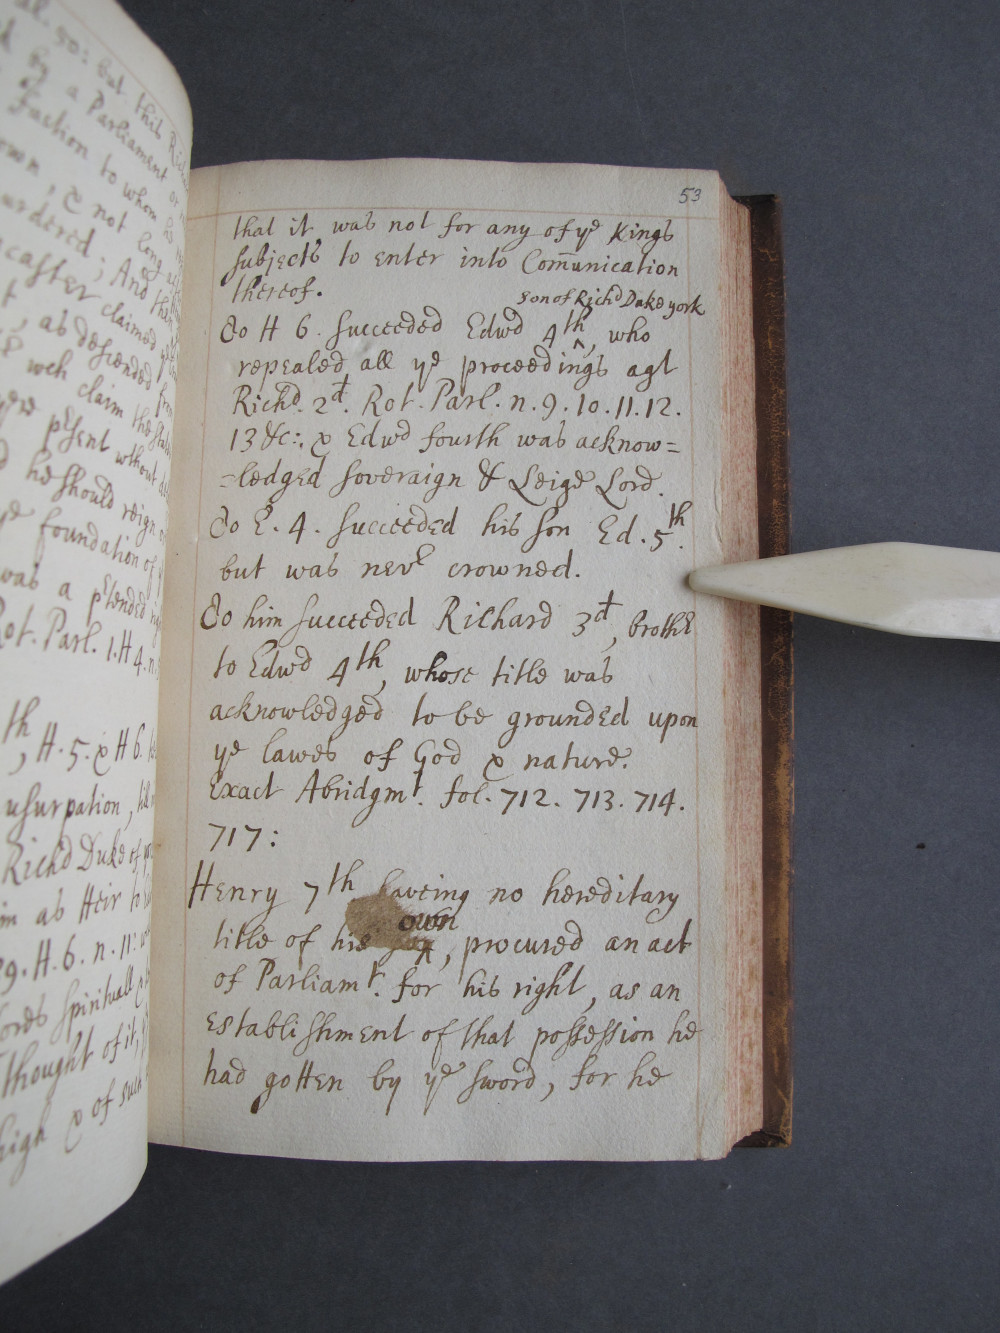 53
that it was not for any of ye Kings
subjects to enter into Com̅unication
thereof.
son of Richd Duke york
To H 6. succeeded Edwd 4th ^, who
repealed all ye proceedings agt
Richd. 2d. Rot. Parl. n. 9. 10. 11. 12.
13 &c: & Edwd fourth was acknow=
=ledged soveraign & Leige Lord.
To E. 4. succeeded his son Ed. 5th.
but was never crowned.
To him succeeded Richard 3d, brother
to Edwd 4th, whose title was
acknowledged to be grounded upon
ye lawes of God & nature.
Exact Abridgmt. fol. 712. 713. 714.
717:
Henry 7th haveing no hereditary
own
title of his, procured an act
of Parliamt. for his right, as an
establishment of that possession he
had gotten by ye sword, for he
but this
by a Parliament or
Faction to whom
own, & not long
urdered; And then
caster claimed
as descended from
wch claim the
psent without
he should reign
ye foundation of
was a ptended
Rot. Parl. 1. H 4. n.
th, H. 5. & H 6.
usurpation,
Richd Duke of
as Heir to
H. 6. n. 11:
Lords spirituall &
thought of it,
high & of such